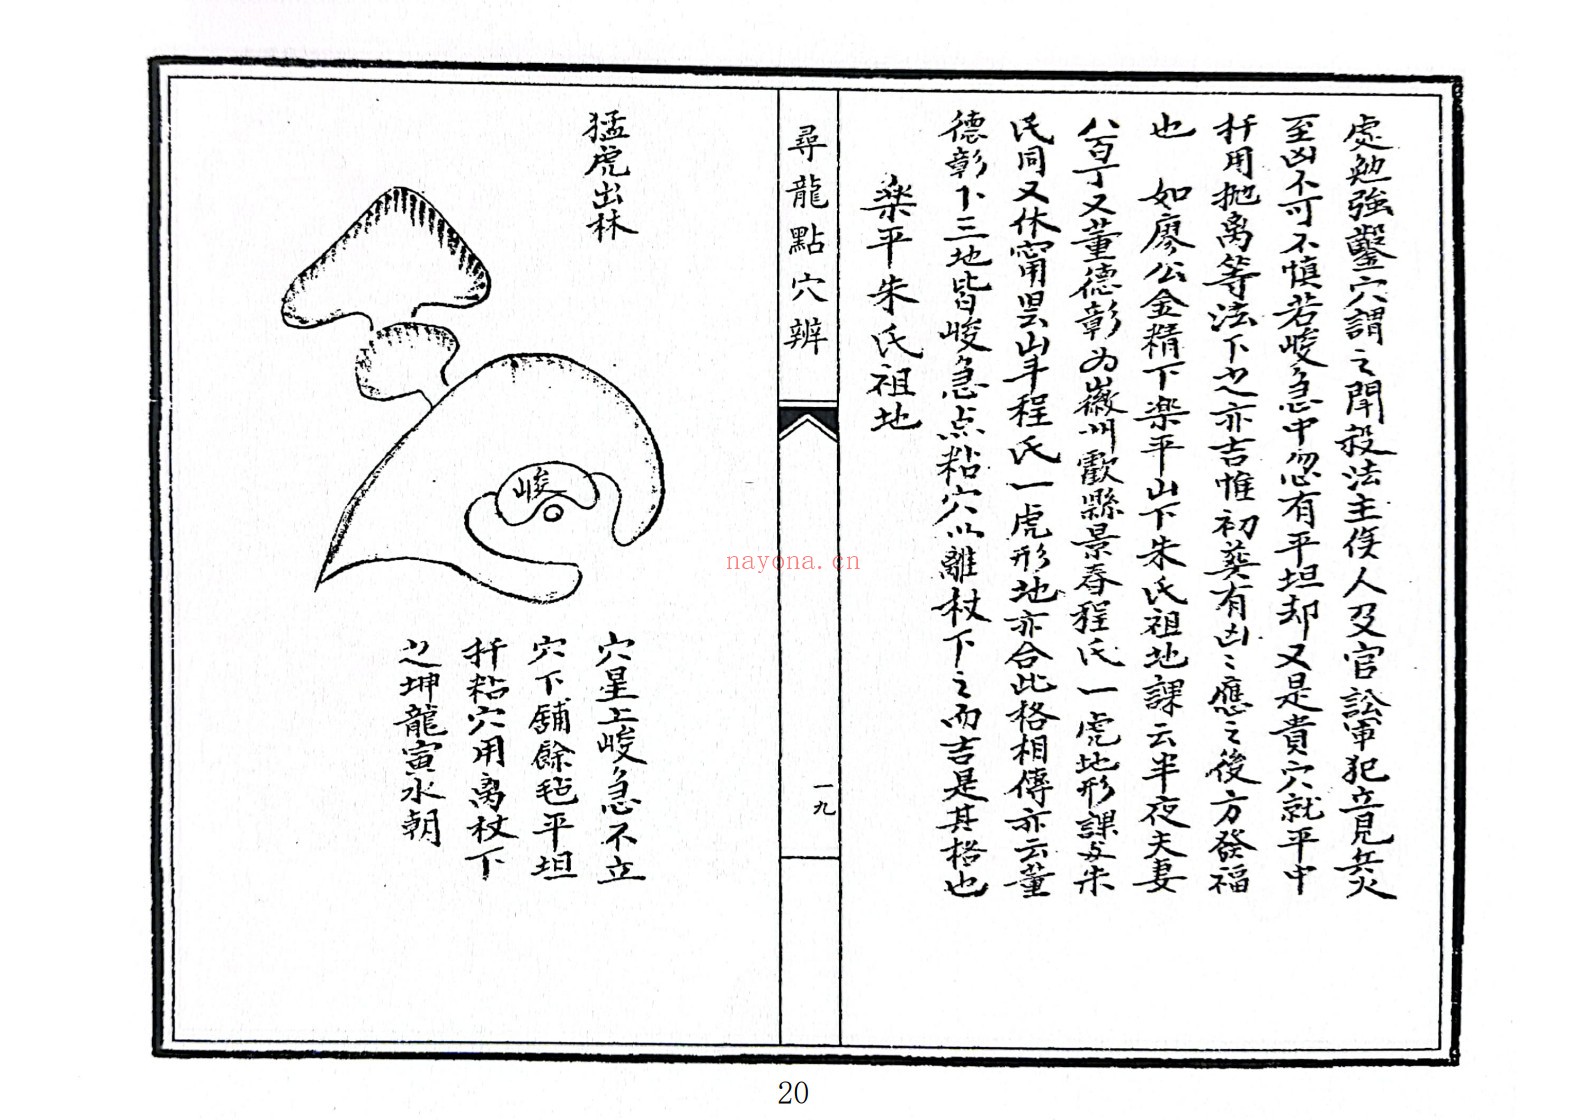 處勉強鑿穴謂之闘殺法主伎人及官訟軍犯立見兵火
至凶不可不慎若峻急中忽有平坦却又是貴穴就平中
扦用抛离等法下之亦吉惟初葬有凶〻應之後方發福
也 如廖公金精下楽平山下朱氏祖地課云半夜夫妻
八百丁又董德彰為徽州歙縣景春程氏一虎地形課与朱
氏同又休甯㟴山羊程氏一虎形地亦合此格相傳亦云董
德彰下三地皆峻急点粘穴以離杖下之而吉是其格也
楽平朱氏祖地
尋龍點穴辨
一九
猛虎出林
峻
穴星上峻急不立
穴下舖餘毡平坦
扦粘穴用离杖下
之坤龍寅水朝
nayona.cn
20